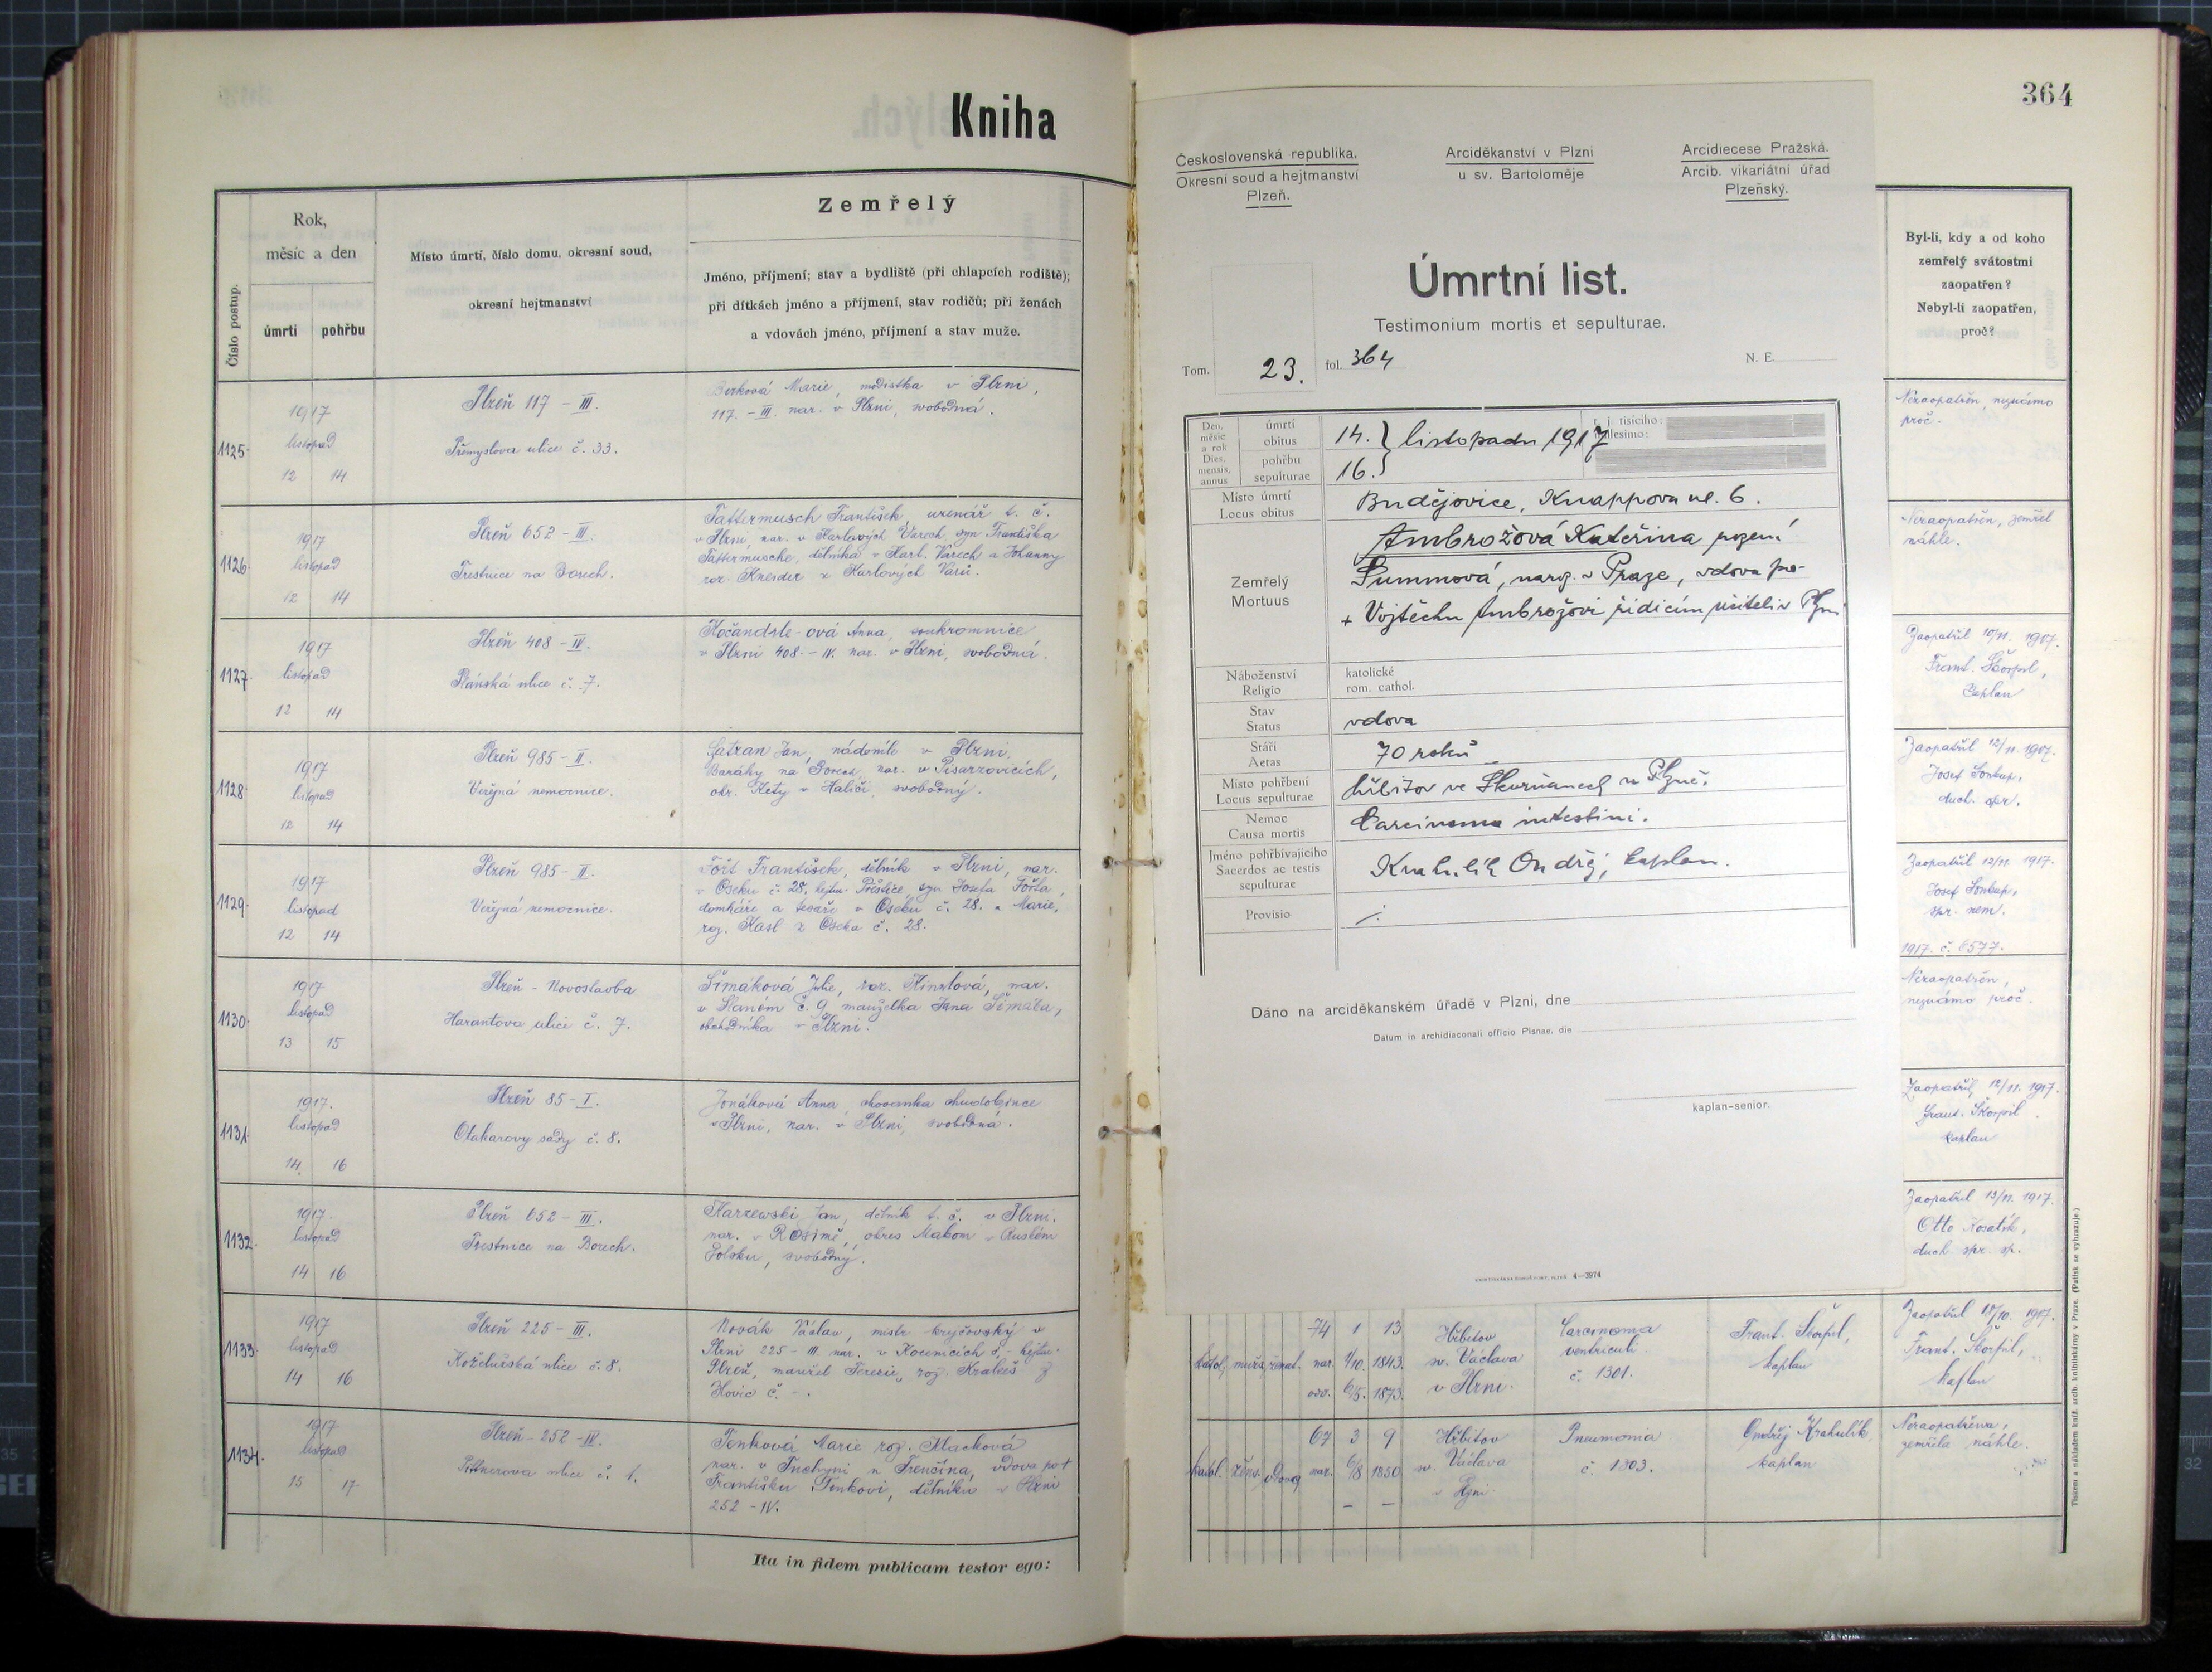 Kniha
Číslo postup.
Rok,
měsíc a den
úmrtí pohřbu
Místo úmrtí, číslo domu, okresní soud,
okresní hejtmanství
Zemřelý
Jméno, příjmení; stav a bydliště (při chlapcích rodiště);
při dítkách jméno a příjmení, stav rodičů; při ženách
a vdovách jméno, příjmení a stav muže.
1125.
1917
listopad
12 14
Plzeň 117 – III.
Přemyslova ulice č. 33.
Marie, modistka v Plzni,
117. – III. nar. v Plzni, svobodná.
1126.
1917
listopad
12 14
Plzeň 652 – III.
Trestnice na Borech.
Tattermusch František, uzenář t. č.
v Plzni, nar. v Karlových Varech, syn Františka
Tattermusche, dělníka v Karl. Varech a Johanny
roz. z Karlových Varů.
1127.
1917
listopad
12 14
Plzeň 408 – IV.
Plánská ulice č. 7.
Kočandrle-ová Anna, soukromnice
v Plzni 408. – IV. nar. v Plzni, svobodná.
1128.
1917
listopad
12 14
Plzeň 985 – II.
Veřejná nemocnice.
Jan, nádeník v Plzni,
Baráky na Borech, nar. v Pisarzovicích,
okr. Kety v Haliči, svobodný.
1129.
1917
listopad
12 14
Plzeň 985 – II.
Veřejná nemocnice.
Fořt František, dělník v Plzni, nar.
v Oseku č. 28, hejtm. Přeštice, syn Josefa Fořta,
domkáře a tesaře v Oseku č. 28. a Marie,
roz. Kasl z Oseka č. 28.
1130.
1917
listopad
13 15
Plzeň – Novostavba
Harantova ulice č. 7.
Šimáková Julie, roz. Kinzlová, nar.
v Slaném č. 9, manželka Jana Šimáka,
obchodníka v Plzni.
1131.
1917.
listopad
14. 16
Plzeň 85 – I.
Otakarovy sady č. 8.
Jonáková Anna, chovanka chudobince
v Plzni, nar. v Plzni, svobodná.
1132.
1917.
listopad
14 16
Plzeň 652 – III.
Trestnice na Borech.
Karzewski Jan, dělník t. č. v Plzni.
nar. v Rosimě, okres Makom v Ruském
Polsku, svobodný.
1133.
1917
listopad
14 16
Plzeň 225 – III.
Koželužská ulice č. 8.
Novák Václav, mistr krejčovský v
Plzni 225 – III. nar. v Kocenicích 8, – hejtm.
Plzeň, manžel Terezie, roz. Krakeš z
č. –.
1134.
1917
listopad
15 17
Plzeň – 252 – IV.
Pittnerova ulice č. 1.
Tenková Marie roz. Klacková
nar. v Tuchyni u Trenčína, vdova po †
Františku Tenkovi, dělníku v Plzni
252 – IV.
Ita in fidem publicam testor ego:
364
Československá republika.
Okresní soud a hejtmanství
Plzeň.
Arciděkanství v Plzni
u sv. Bartoloměje
Arcidiecese Pražská.
Arcib. vikariátní úřad
Plzeňský.
Úmrtní list.
Testimonium mortis et sepulturae.
Tom. 23. fol. 364 N. E.
Den, měsíc a rok
Dies, mensis, annus
úmrtí
obitus
pohřbu
sepulturae
14.
16. } listopadu 1917
t. j. tisícího:
millesimo:
Místo úmrtí
Locus obitus
Budějovice, Knappova ul. 6.
Zemřelý
Mortuus
Ambrožová Kateřina rozená
Šummová, naroz. v Praze, vdova po
+ Vojtěchu Ambrožovi řídícím učiteli v Plzni
Náboženství
Religio
katolické
rom. cathol.
Stav
Status
vdova
Stáří
Aetas
70 roků
Místo pohřbení
Locus sepulturae
hřbitov ve Skvrňanech u Plzně.
Nemoc
Causa mortis
Carcinoma intestini.
Jméno pohřbívajícího
Sacerdos ac testis
sepulturae
Krahulík Ondřej, kaplan.
Provisio
Dáno na arciděkanském úřadě v Plzni, dne
Datum in archidiaconali officio Plsnae, die
kaplan-senior.
4—3974
Byl-li, kdy a od koho
zemřelý svátostmi
zaopatřen?
Nebyl-li zaopatřen,
proč?
Nezaopatřen, neznámo
proč.
Nezaopatřen, zemřel
náhle.
Zaopatřil 10/11. 1917.
Frant. Škorpil,
kaplan
Zaopatřil 12/11. 1917.
Josef Soukup,
duch. spr.
Zaopatřil 12/11. 1917.
Josef Soukup,
spr. nem.
1917. č. 6577.
Nezaopatřen,
neznámo proč.
Zaopatřil 12/11. 1917.
Frant. Škorpil
kaplan
Zaopatřil 13/11. 1917.
Otto Kosatík,
duch. spr. sp.
katol. mužs. ženat.
74 1 13
nar. 1/10. 1843.
ovd. 6/5. 1873.
Hřbitov
sv. Václava
v Plzni.
Carcinoma
ventriculi
č. 1301.
Frant. Škorpil,
kaplan
Zaopatřil 18/10. 1917.
Frant. Škorpil,
kaplan
katol. žens. vdova
67 3 9
nar. 6/8 1850
– –
Hřbitov
sv. Václava
v Plzni
Pneumonia
č. 1303.
Ondřej Krahulík
kaplan
Nezaopatřena,
zemřela náhle.
Tiskem a nákladem kníž. arcib. knihtiskárny v Praze. (Patisk se vyhrazuje.)